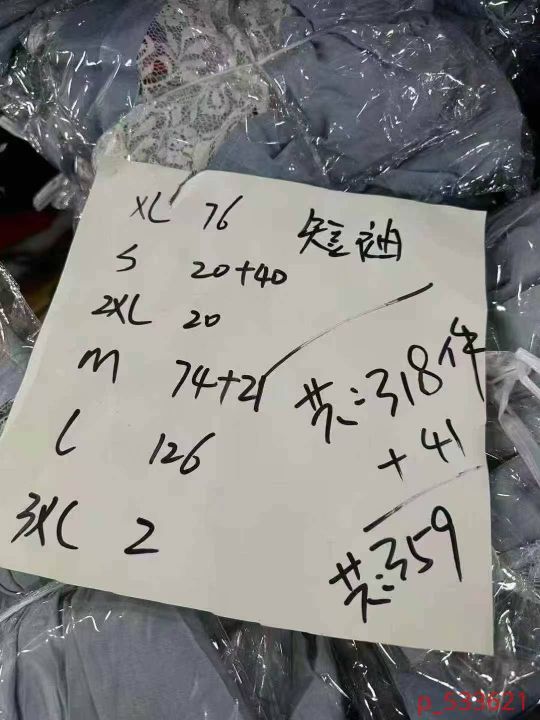 XL 76
短袖
S 20+40
2XL 20
M 74+21
L 126
3XL 2
共:318件
+41
共:359
p_533621